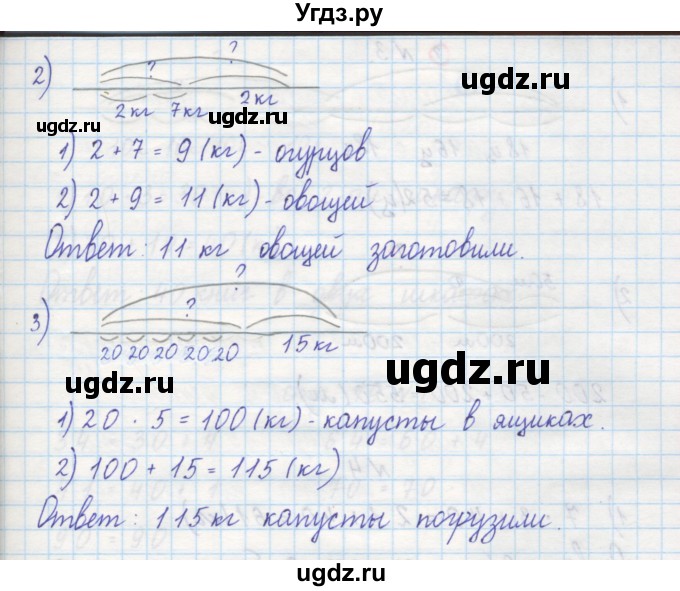 Угдз.ру
?
2) ? ugdz.ru
2кг 7кг 2кг
ugdz.ru ugdz.ru
1) 2 + 7 = 9 (кг) - огурцов
2) 2 + 9 = 11 (кг) - овощей
ugdz.ru
Ответ: 11 кг овощей заготовили.
?
3) ?
20 20 20 20 20 15 кг
ugdz.ru ugdz.ru
1) 20 · 5 = 100 (кг) - капусты в ящиках.
2) 100 + 15 = 115 (кг)
ugdz.ru
Ответ: 115кг капусты погрузили.
ugdz.ru ugdz.ru
ugdz.ru